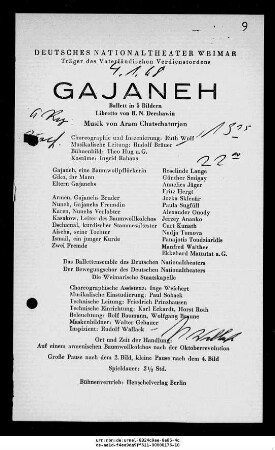 9
DEUTSCHES NATIONALTHEATER WEIMAR
Träger des Vaterländischen Verdienstordens
4. 1. 68
GAJANEH
Ballett in 5 Bildern
Libretto von B. N. Dershawin
Musik von Aram Chatschaturjan
Choreographie und Inszenierung: Ruth Wolf
Musikalische Leitung: Rudolf Bräuer
Bühnenbild: Theo Hug a. G.
Kostüme: Ingrid Rahaus
Gajaneh, eine Baumwollpflückerin Roselinde Lange
Giko, ihr Mann Günther Smigay
Eltern Gajanehs Annelies Jäger
Fritz Hergt
Armen, Gajanehs Bruder
Nuneh, Gajanehs Freundin
Karen, Nunehs Verlobter Alexander Onody
Kasakow, Leiter des Baumwollkolchos Jerzy
Dschamal, kurdischer Stammesältester Curt Kunath
Aischa, seine Tochter Nadja
Ismail, ein junger Kurde Panajotis
Zwei Freunde Manfred
Ekkehard a. G.
Das Ballettensemble des Deutschen Nationaltheaters
Der Bewegungschor des Deutschen Nationaltheaters
Die Weimarische Staatskapelle
Choreographische Assistenz: Inge Weichert
Musikalische Einstudierung: Paul Schaek
Technische Leitung: Friedrich Prinzhausen
Technische Einrichtung: Karl Eckardt, Horst Roch
Beleuchtung: Rolf Baumann, Wolfgang
Maskenbildner: Walter Gebauer
Inspizient: Rudolf Wallack
Ort und Zeit der Handlung:
Auf einem armenischen Baumwollkolchos nach der Oktoberrevolution
Große Pause nach dem 2. Bild, kleine Pause nach dem 4. Bild
Spieldauer: 2½ Std.
Bühnenvertrieb: Henschelverlag Berlin